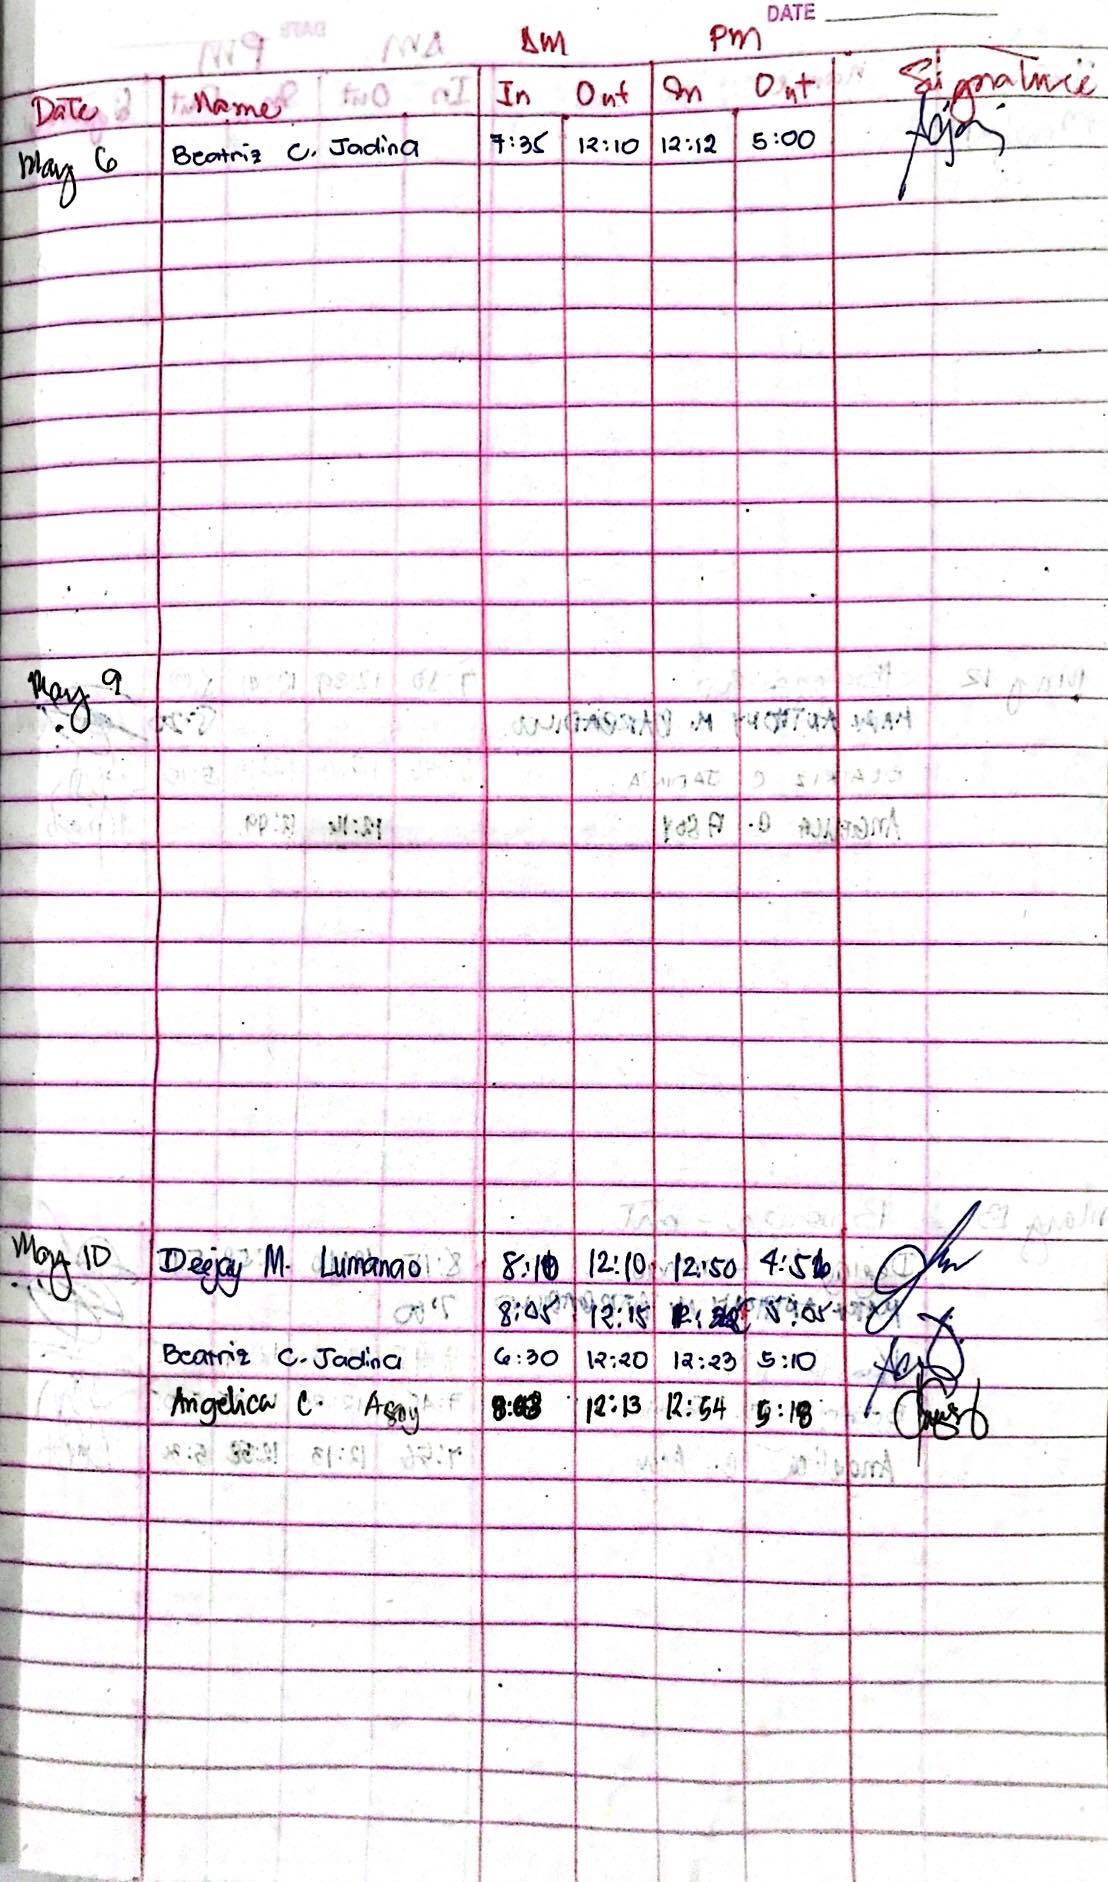 DATE
AM PM
Date Name In Out In Out Signature
May 6 Beatriz C. Jadina 7:35 12:10 12:12 5:00
May 9
May 10 Deejay M. Lumanao 8:10 12:10 12:50 4:56
8:05 12:15 5:05
Beatriz C. Jadina 6:30 12:20 12:23 5:10
Angelica C. Asoy 12:13 12:54 5:18